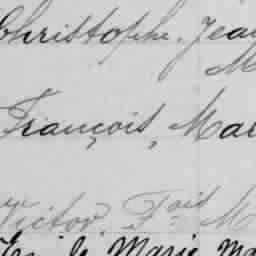 Christophe, Jean
M
François, Mar
Victor Fois M
Marie Ma